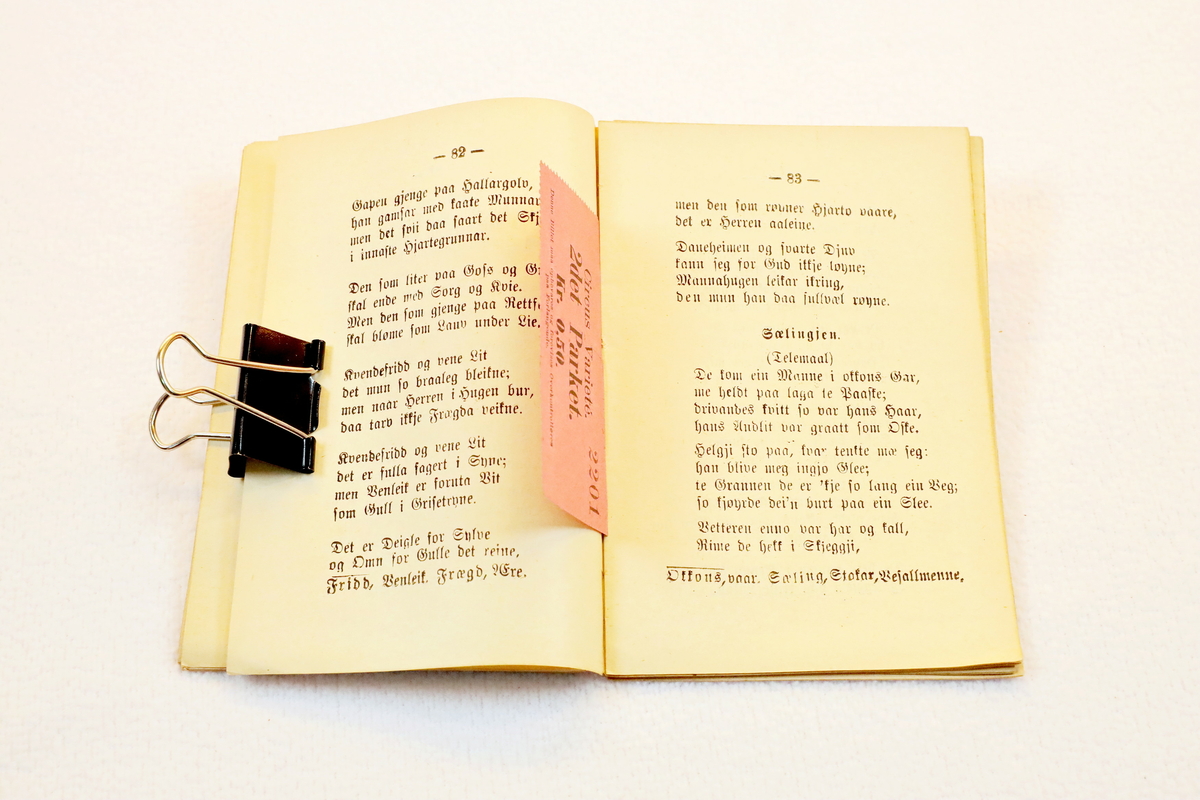 — 82 —
Gapen gjenge paa Hallargolv,
han gamsar med kaate Munnar
men det svii daa saart det Skj
i innaste Hjartegrunnar.
Den som liter paa Gofs og Gr
skal ende med Sorg og Kvie.
Men den som gjenge paa Rettfe
skal blome som Lauv under Lie.
Kvendefridd og vene Lit
det mun so braaleg bleikne;
men naar Herren i Hugen bur,
daa tarv ikkje Frægda veikne.
Kvendefridd og vene Lit
det er fulla fagert i Syne;
men Venleik er foruta Vit
som Gull i Grisetryne.
Det er Deigle for Sylve
og Omn for Gulle det reine,
Fridd, Venleik. Frægd, Ære.
Circus Varieté.
2det Parket.
kr. 0,50.
2201
— 83 —
men den som røyner Hjarto vaare,
det er Herren aaleine.
Daueheimen og svarte Djuv
kann seg for Gud ikkje løyne;
Mannahugen leikar ikring,
den mun han daa fullvæl røyne.
Sælingjen.
(Telemaal)
De kom ein Manne i okkons Gar,
me heldt paa laga te Paaske;
drivandes kvitt so var hans Haar,
hans Andlit var graatt som Oske.
Helgji sto paa, kvar tenkte mæ seg:
han blive meg ingjo Glee;
te Grannen de er 'kje so lang ein Veg;
so kjøyrde dei'n burt paa ein Slee.
Vetteren enno var har og kall,
Rime de hekk i Skjeggji,
Okkons, vaar. Sæling, Stakar, Vesallmenne,